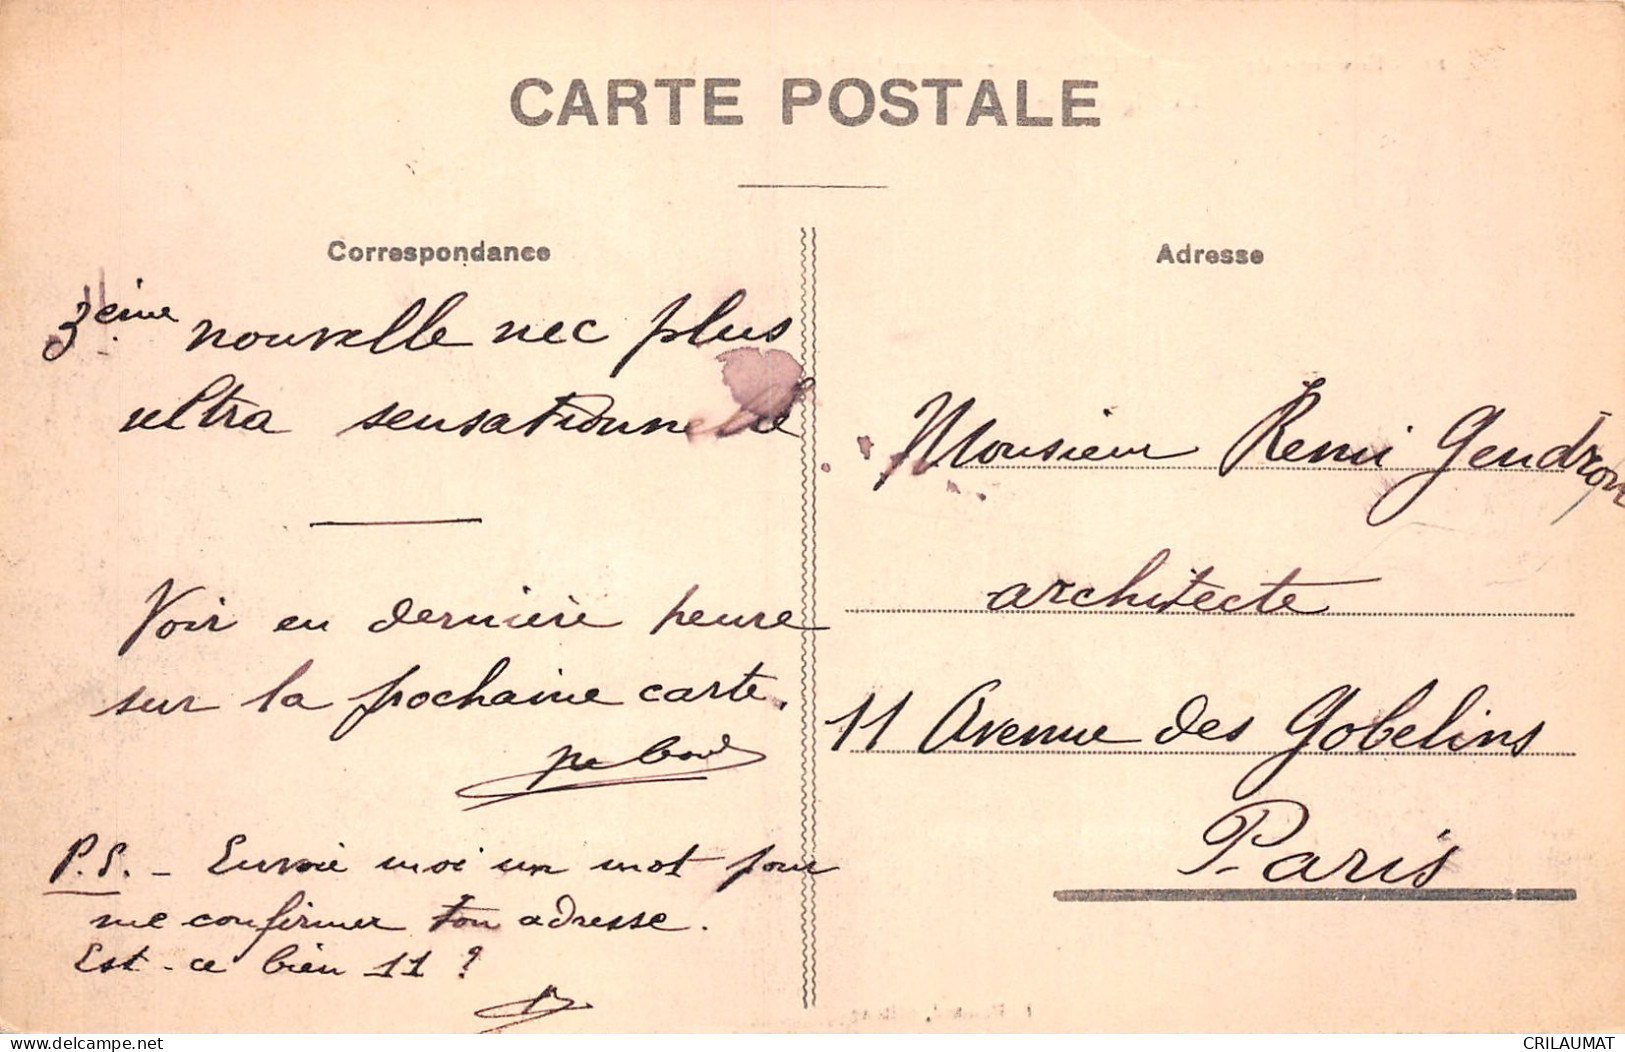 CARTE POSTALE
Correspondance
3ème nouvelle nec plus
ultra sensationnelle
Voir en dernière heure
sur la prochaine carte.
P.S. - Envoie moi un mot pour
me confirmer ton adresse.
Est-ce bien 11 ?
Adresse
Monsieur Remi Gendron
architecte
11 Avenue des Gobelins
Paris
delcampe.net
CRILAUMAT